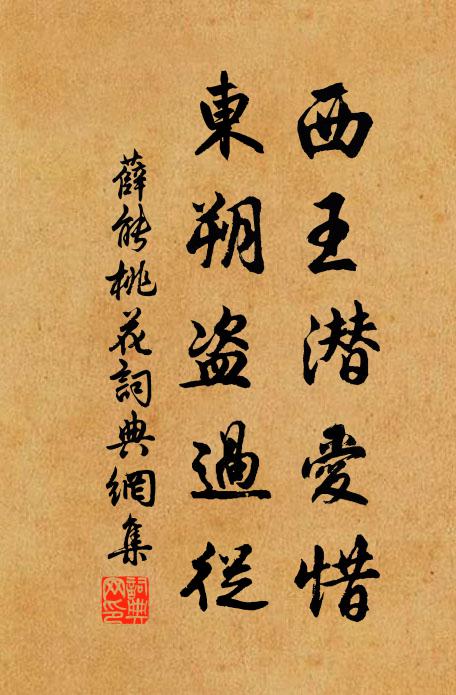 西王潜愛惜
東朔盗過從
薛能桃花詞典網集
詞典網印